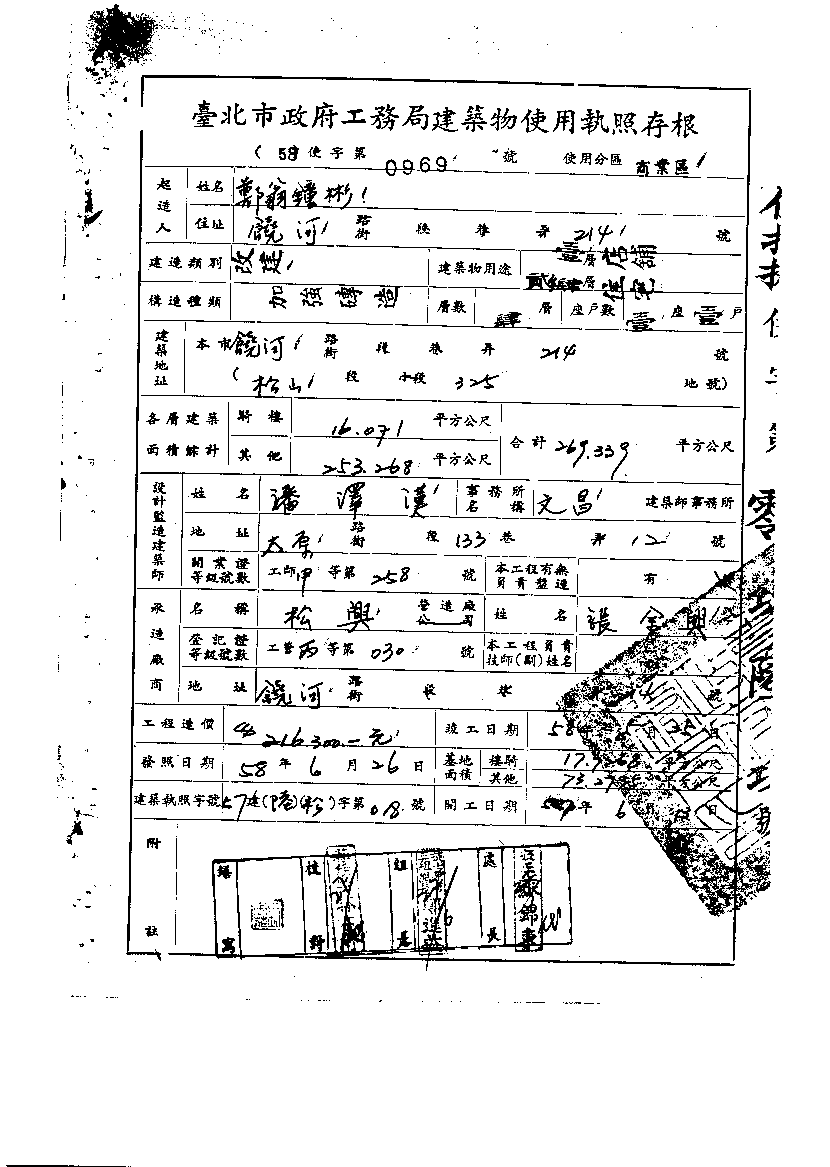 臺北市政府工務局建築物使用執照存根
(58使字第 0969 號 使用分區 商業區
起造人 姓名 鄭翁鐘彬
住址 饒河 路街 段 巷 弄 214 號
建造類別 改建 建築物用途 壹層店舖 住宅
構造種類 加強磚造 層數 肆 層 座戶數 壹 座 壹 戶
建築地址 本市 饒河 路街 段 巷 弄 214 號
(松山 段 小段 325 地號)
各層建築面積綜計 騎樓 16.071 平方公尺 合計 269.339 平方公尺
其他 253.268 平方公尺
設計監造建築師 姓名 潘澤漢 事務所名稱 文昌 建築師事務所
地址 太原 路街 段 133 巷 弄 12 號
開業證等級號數 工師甲等第 258 號 本工程有無負責監造 有
承造廠商 名稱 松興 營造廠公司 姓名 張金興
登記證等級號數 工營丙等第 030 號 本工程負責技師(副)姓名
地址 饒河 路街 段 號
工程造價 216.300.-元 竣工日期 58 年 5 月 25 日
發照日期 58 年 6 月 26 日 基地面積 騎樓 平方公尺
其他 平方公尺
建築執照字號 57建( )(松)字第018號 開工日期 年 6 月 日
附註
繕寫 校對 組長 處長